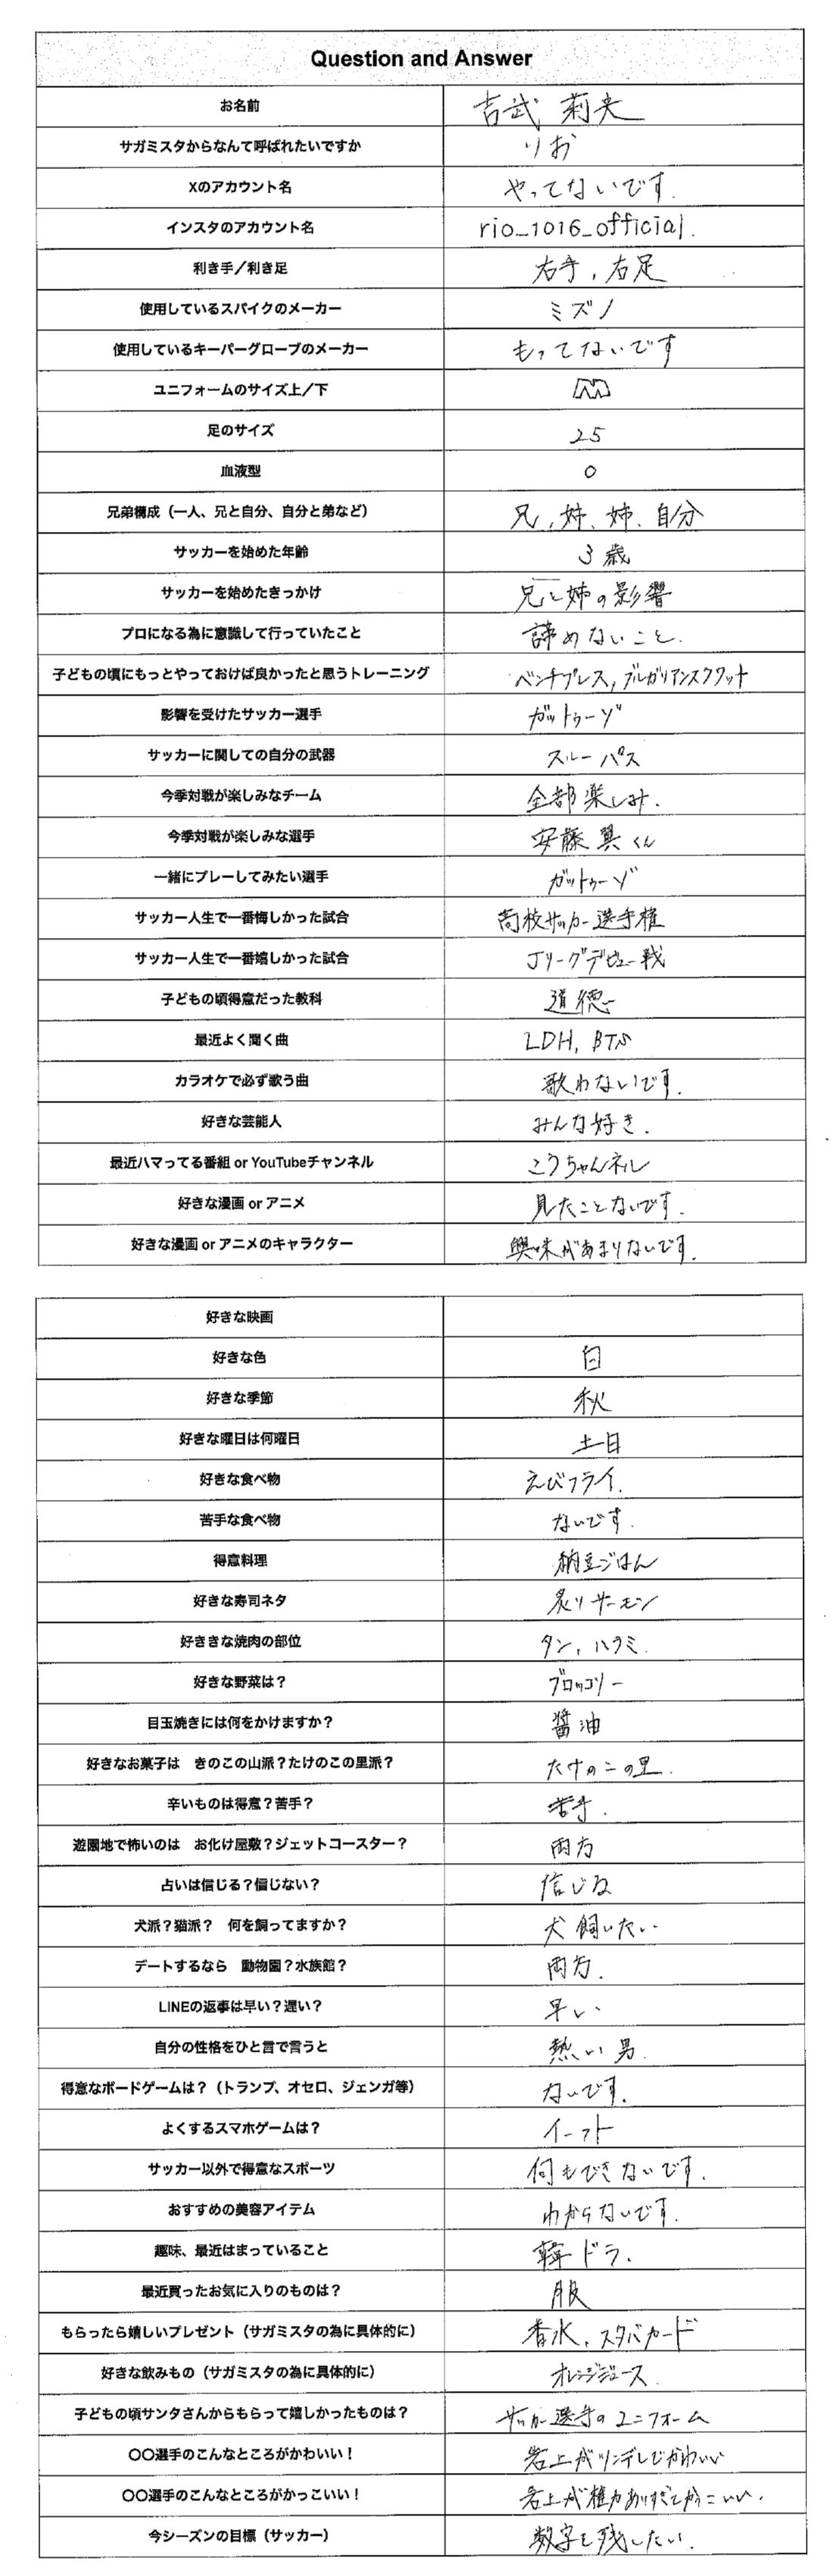 Question and Answer
お名前 吉武 莉央
サガミスタからなんて呼ばれたいですか りお
Xのアカウント名 やってないです.
インスタのアカウント名 rio_1016_official.
利き手/利き足 右手, 右足
使用しているスパイクのメーカー ミズノ
使用しているキーパーグローブのメーカー もってないです
ユニフォームのサイズ上/下 M
足のサイズ 25
血液型 O
兄弟構成（一人、兄と自分、自分と弟など） 兄, 姉、姉、自分
サッカーを始めた年齢 3歳
サッカーを始めたきっかけ 兄と姉の影響
プロになる為に意識して行っていたこと 諦めないこと.
子どもの頃にもっとやっておけば良かったと思うトレーニング ベンチプレス, ブルガリアンスクワット
影響を受けたサッカー選手 ガットゥーゾ
サッカーに関しての自分の武器 スルーパス
今季対戦が楽しみなチーム 全部楽しみ.
今季対戦が楽しみな選手 安藤翼くん
一緒にプレーしてみたい選手 ガットゥーゾ
サッカー人生で一番悔しかった試合 高校サッカー選手権
サッカー人生で一番嬉しかった試合 Jリーグデビュー戦
子どもの頃得意だった教科 道徳
最近よく聞く曲 LDH, BTS
カラオケで必ず歌う曲 歌わないです.
好きな芸能人 みんな好き.
最近ハマってる番組 or YouTubeチャンネル こうちゃんネル
好きな漫画 or アニメ 見たことないです.
好きな漫画 or アニメのキャラクター 興味があまりないです.
好きな映画
好きな色 白
好きな季節 秋
好きな曜日は何曜日 土日
好きな食べ物 えびフライ.
苦手な食べ物 ないです.
得意料理 納豆ごはん
好きな寿司ネタ 炙りサーモン
好ききな焼肉の部位 タン, ハラミ.
好きな野菜は？ ブロッコリー
目玉焼きには何をかけますか？ 醤油
好きなお菓子は きのこの山派？たけのこの里派？ たけのこの里.
辛いものは得意？苦手？ 苦手.
遊園地で怖いのは お化け屋敷？ジェットコースター？ 両方
占いは信じる？信じない？ 信じる
犬派？猫派？ 何を飼ってますか？ 犬飼いたい
デートするなら 動物園？水族館？ 両方.
LINEの返事は早い？遅い？ 早い
自分の性格をひと言で言うと 熱い男.
得意なボードゲームは？（トランプ、オセロ、ジェンガ等） ないです.
よくするスマホゲームは？ イーフト
サッカー以外で得意なスポーツ 何もできないです.
おすすめの美容アイテム わからないです.
趣味、最近はまっていること 韓ドラ.
最近買ったお気に入りのものは？ 服
もらったら嬉しいプレゼント（サガミスタの為に具体的に） 香水, スタバカード
好きな飲みもの（サガミスタの為に具体的に） オレンジジュース.
子どもの頃サンタさんからもらって嬉しかったものは？ サッカー選手のユニフォーム
〇〇選手のこんなところがかわいい！ 岩上がツンデレでかわいい
〇〇選手のこんなところがかっこいい！ 岩上が権力ありすぎてかっこいい.
今シーズンの目標（サッカー） 数字を残したい.